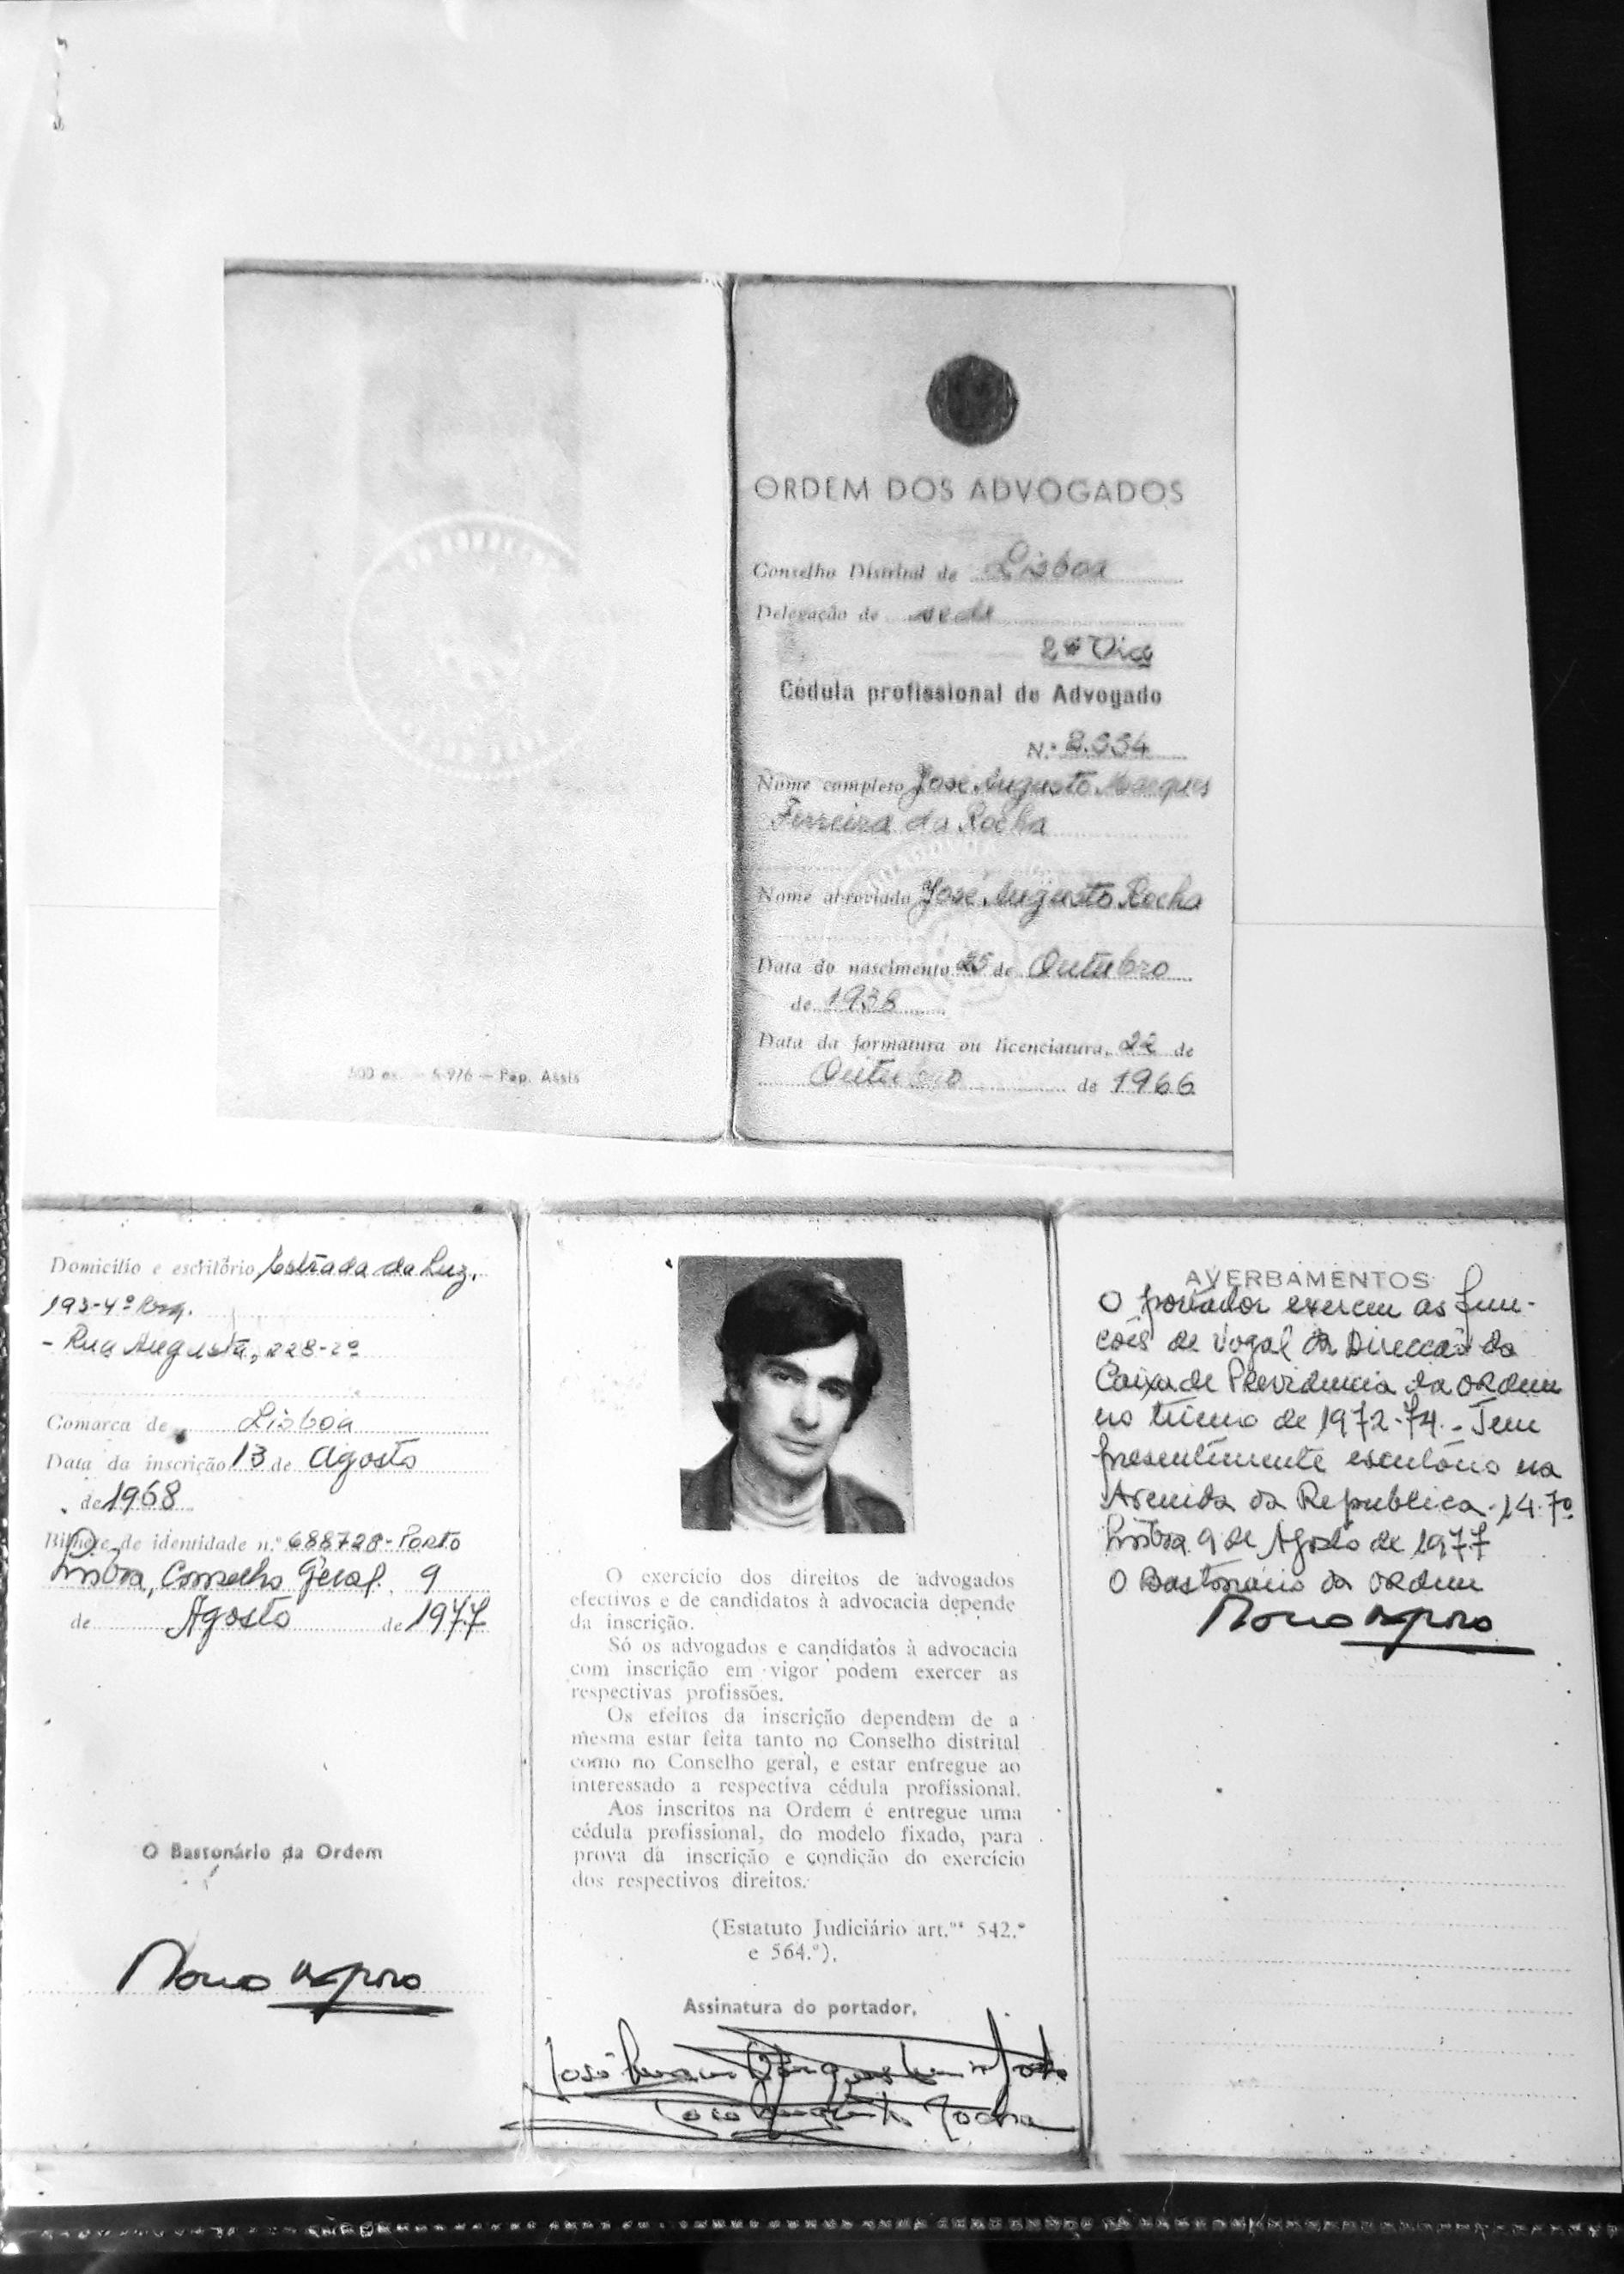 ORDEM DOS ADVOGADOS
Conselho Distrital de Lisboa
Delegação de sede
2ª Via
Cédula profissional de Advogado
N.º
Nome completo José Augusto Marques
Ferreira da Rocha
Nome abreviado José Augusto Rocha
Data do nascimento 25 de Outubro
de 1938
Data da formatura ou licenciatura, 22 de
Outubro de 1966
500 ex. — — Pap. Assis
Domicílio e escritório Estrada da Luz,
193-4º
- Rua Augusta, 228-2º
Comarca de Lisboa
Data da inscrição 13 de Agosto
de 1968
Bilhete de identidade n.º 688728-Porto
Lisboa, Conselho Geral, 9
de Agosto de 1977
O Bastonário da Ordem
O exercício dos direitos de advogados
efectivos e de candidatos à advocacia depende
da inscrição.
Só os advogados e candidatos à advocacia
com inscrição em vigor podem exercer as
respectivas profissões.
Os efeitos da inscrição dependem de a
mesma estar feita tanto no Conselho distrital
como no Conselho geral, e estar entregue ao
interessado a respectiva cédula profissional.
Aos inscritos na Ordem é entregue uma
cédula profissional, do modelo fixado, para
prova da inscrição e condição do exercício
dos respectivos direitos.
(Estatuto Judiciário art.ᵒˢ 542.º
e 564.º).
Assinatura do portador,
José Augusto Rocha
AVERBAMENTOS
O portador exerceu as fun-
ções de Vogal da Direcção da
Caixa de Previdencia da Ordem
no trienio de 1972-74. - Tem
presentemente escritório na
Avenida da Republica. 14-7º
Lisboa 9 de Agosto de 1977
O Bastonário da Ordem